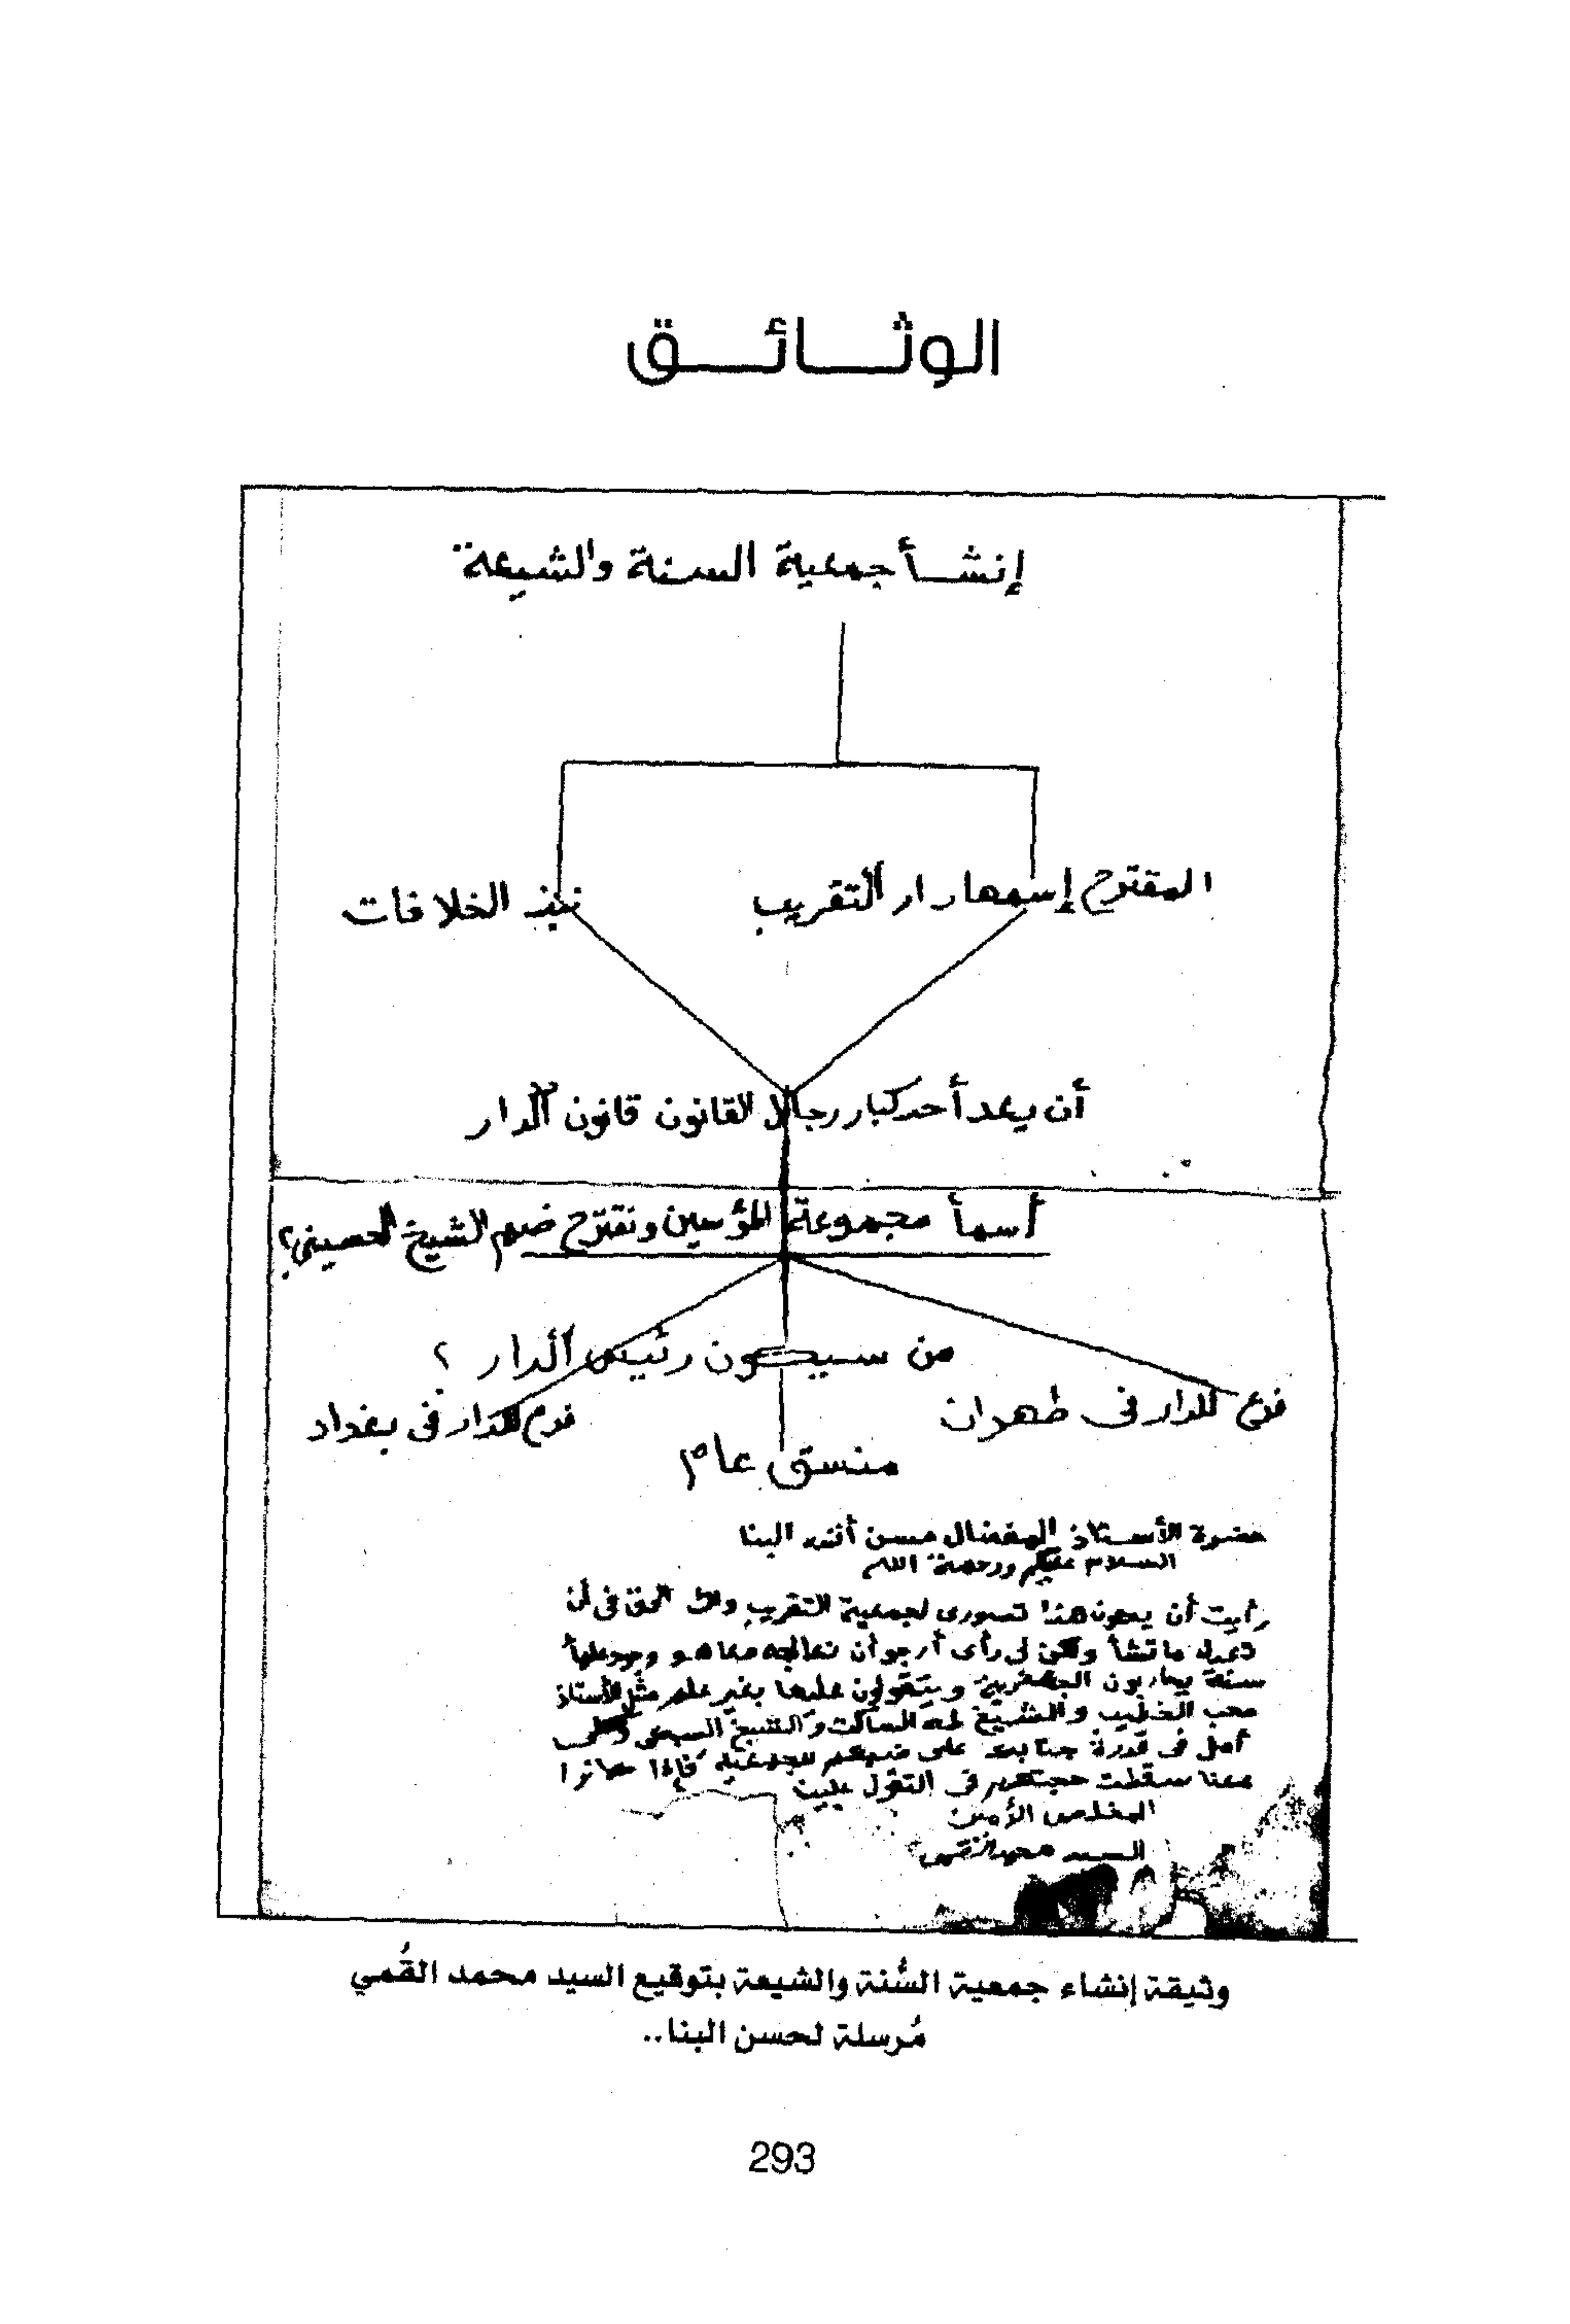 الوثــائــق
إنشـأ جمعية السنة والشيعة
المقترح إسمها دار التقريب
نبذ الخلافات
أن يعد أحد كبار رجال القانون قانون الدار
أسمأ مجموعة المؤسين ونقترح ضم الشيخ الحسيني؟
من سيكون رئيس الدار ؟
فرع للدار فى طهران
فرع للدار فى بغداد
منسق عام
حضرة الأستاذ المفضال حسن أفندى البنا
السلام عليكم ورحمة الله
رأيت أن يكون هذا تصورى لجمعية التقريب ولك الحق فى أن
ما تشأ ولكن لى رأى أرجو أن تعالجه معاهو وجود علمأ
سنة يحاربون الجعفرية ويتقولون عليها بغير علم مثل الأستاذ
محب الخطيب والشيخ طه الساكت والشيخ السبعى
أمل فى قدرة جنابك على ضمهم للجمعية فإذا كانوا
معنا سقطت حجتهم فى التقول علينا
المخلص الأمين
السيد محمد القمى
وثيقة إنشاء جمعية السُّنة والشيعة بتوقيع السيد محمد القُمي
مُرسلة لحسن البنا..
293